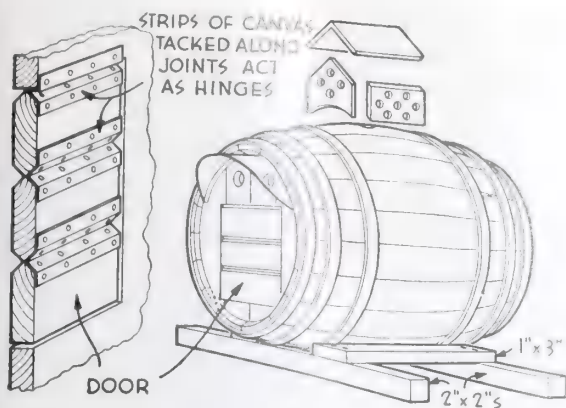 STRIPS OF CANVAS
TACKED ALONG
JOINTS ACT
AS HINGES
DOOR
1" x 3"
2" x 2"s